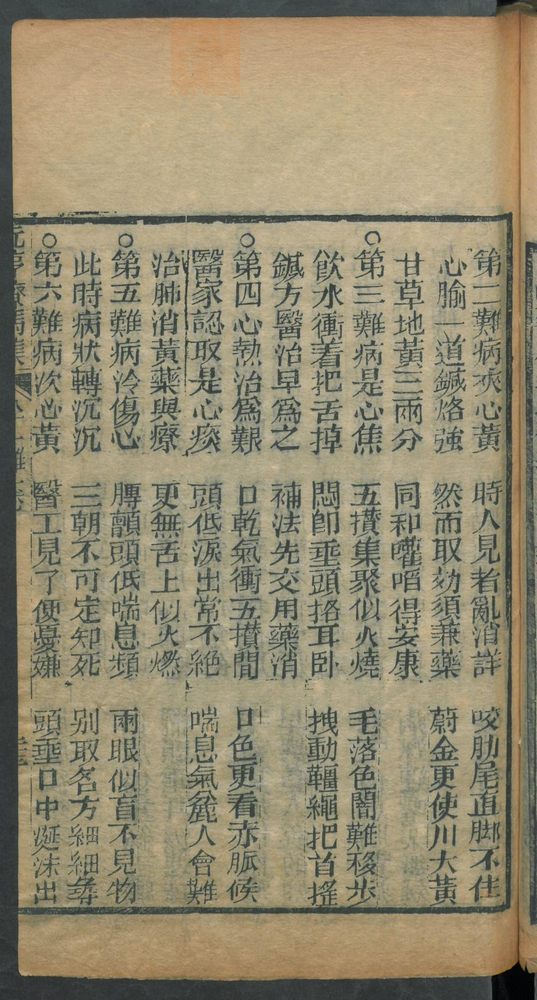 第二難病夾心黃　時人見者亂消詳　咬肋尾直脚不住
心腧一道鍼烙強　然而取効須兼藥　蔚金更使川大黃
甘草地黃三兩分　同和囉啗得安康
○第三難病是心焦　五攢集聚似火燒　毛落色闇難移步
飲水衝着把舌掉　悶卽垂頭挌耳卧　拽動韁繩把首搖
鍼方醫治早爲之　補法先交用藥消
○第四心熱治爲艱　口乾氣衝五攢間　口色更看赤脈候
醫家認取是心痰　頭低淚出常不絕　喘息氣麄人會難
治肺消黃藥與療　更無舌上似火燃
○第五難病冷傷心　膊顫頭低喘息頻　兩眼似盲不見物
此時病狀轉沉沉　三朝不可定知死　別取名方細細尋
○第六難病次心黃　醫工見了便憂嫌　頭垂口中涎沫出
元亨療馬集